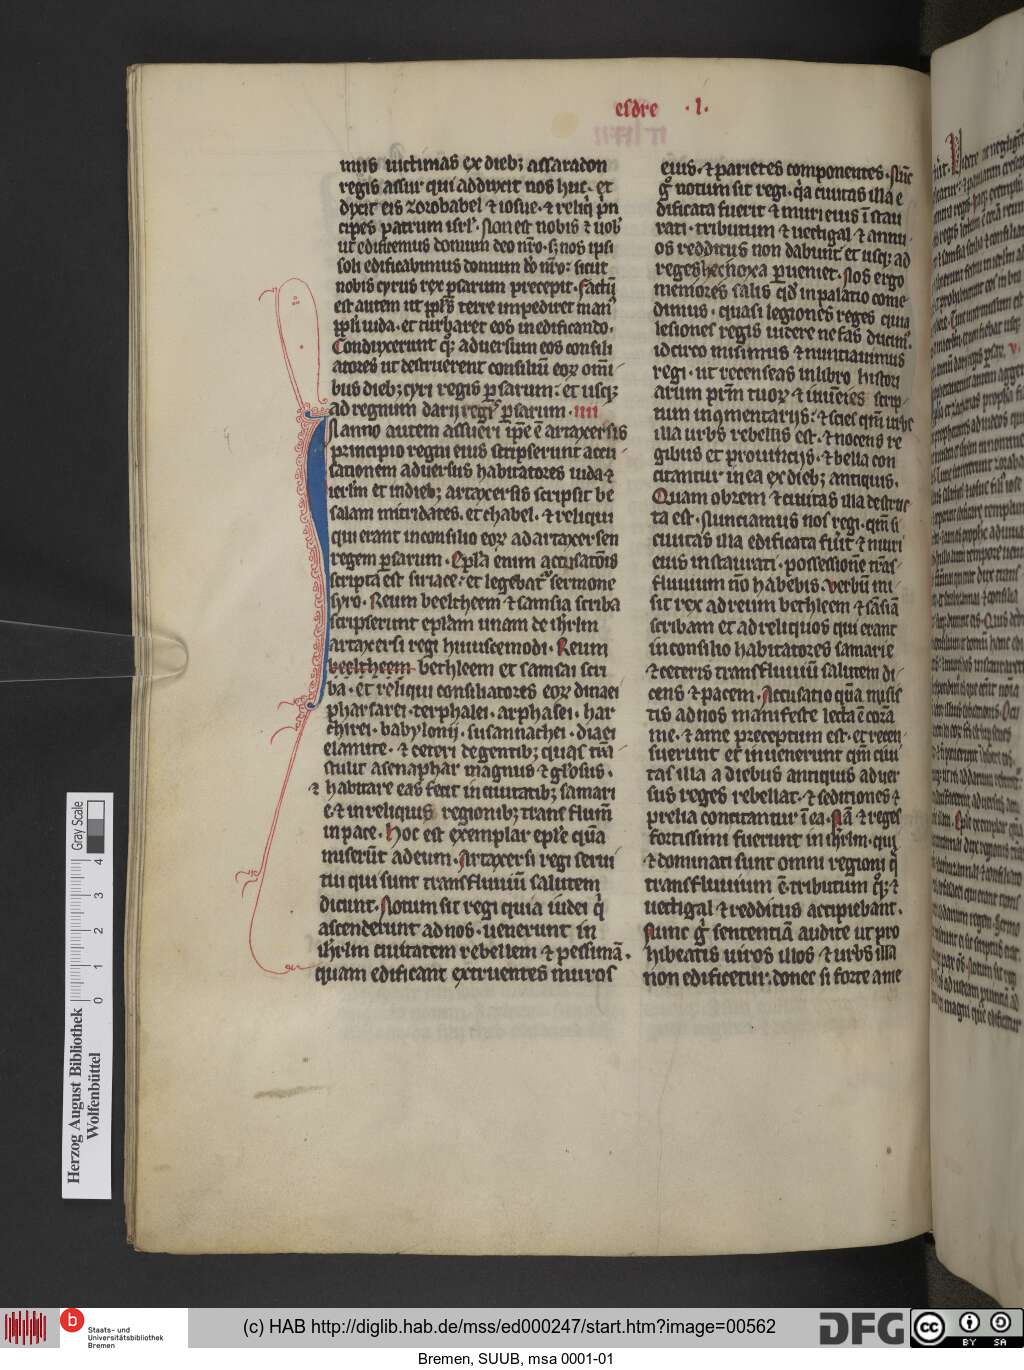 esdre · I ·
mus uictimas ex dieb; assaradon
regis assur qui adduxit nos huc. et
dixit eis zorobabel ⁊ iosue. ⁊ reliq̇ p̄n
cipes patrum isrl'. Non est nobis ⁊ uob'
ut edificemus domum deo nr̄o. s; nos ipsi
soli edificabimus domum do nr̄o: sicut
nobis cyrus rex ꝑsarum precepit. Factū
est autem ut ppl's terre impediret man'
ppl'i iuda. et turbaret eos in edificando.
Conduxerunt q; aduersum eos consili
atores ut destruerent consiliū eoꝝ omi
bus dieb; cyri regis ꝑsarum: et usq;
ad regnum darij reg ꝑsarum. IIII
N anno autem assueri ip̄e ē artaxersis
principio regni eius scripserunt accu
sationem aduersus habitatores iuda ⁊
ierlm̄ et in dieb; artaxersis scripsit be
salam mitridates. et thabel. ⁊ reliqui
qui erant in consilio eoꝝ ad artaxersen
regem ꝑsarum. Epl'a enim accusatōis
scripta est siriace: et legebat᷑ sermone
syro. Reum beeltheem ⁊ samsia scriba
scripserunt epl'am unam de ihrlm
artaxersi regi huiuscemodi. Reum
beeltheem bethleem et samsai scri
ba. et reliqui consiliatores eoꝝ dinaei
pharsarei. terphalei. arphasei. har
thirei. babylonij. susannachei. diaei
elamite. ⁊ ceteri de gentib; quas trā
stulit asenaphar magnus ⁊ gl'osus.
⁊ habitare eas fecit in ciuitatib; samari
e. ⁊ in reliquis regionib; trans flum̄
in pace. Hoc est exemplar epl'e quā
miserūt ad eum. Artaxersi regi serui
tui qui sunt trans fluuiū salutem
dicunt. Notum sit regi quia iudei q̇
ascenderunt ad nos. uenerunt in
ihrlm ciuitatem rebellem ⁊ pessimā.
quam edificant extruentes muros
eius. ⁊ parietes componentes. Nūc
g̊ notum sit regi. q̇a ciuitas illa e
dificata fuerit ⁊ muri eius ī stau
rati. tributum ⁊ uectigal ⁊ annu
os redditus non dabunt et usq; ad
reges hec noxa ꝑueniet. Nos ergo
memores salis qd̄ in palatio come
dimus. quasi legiones reges quia
lesiones regis uidere nefas ducim᷒.
idcirco misimus ⁊ nuntiauimus
regi. ut recenseas in libro histori
arum prm̄ tuoꝝ ⁊ inuēies scrip
tum in ɔmentarijs: ⁊ scies qm̄ urbs
illa urbs rebellis est. ⁊ nocens re
gibus et prouincijs. ⁊ bella con
citantur in ea ex dieb; antiquis.
Quam obrem ⁊ ciuitas illa destruc
ta est. Nunciamus nos regi. qm̄ si
ciuitas illa edificata fūit ⁊ muri
eius instaurati. possessionē trās
fluuium nō habebis. Verbū mi
sit rex ad reum bethleem ⁊ sāsiā
scribam et ad reliquos qui erant
in consilio habitatores samarie
⁊ ceteris transfluuiū salutem di
cens ⁊ pacem. Accusatio quā misis
tis ad nos manifeste lecta ē corā
me. ⁊ a me preceptum est. et recen
suerunt et inuenerunt qm̄ ciui
tas illa a diebus antiquis aduer
sus reges rebellat. ⁊ seditiones ⁊
prelia concitantur ī ea. Nā ⁊ reges
fortissimi fuerunt in ihrlm. qui
⁊ dominati sunt omni regioni q̄
transfluuium ē. tributum q̊; ⁊
uectigal ⁊ redditus accipiebant.
Nunc g̊ sententiā audite ut pro
hibeatis uiros illos ⁊ urbs illa
non edificetur. donec si forte a me
Herzog August Bibliothek
Wolfenbüttel
0 1 2 3 4
Gray Scale
b
Staats- und
Universitätsbibliothek
Bremen
(c) HAB http://diglib.hab.de/mss/ed000247/start.htm?image=00562
DFG
cc BY SA
Bremen, SUUB, msa 0001-01